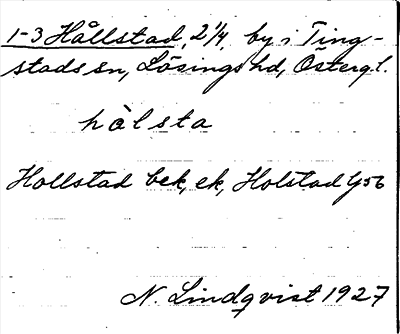 1-3 Hållstad, 2 1/4, by i Ting-
stads sn, Lösings hd, Östergl.
hålsta
Hollstad bek, ek, Holstad Gs6
N. Lindqvist 1927